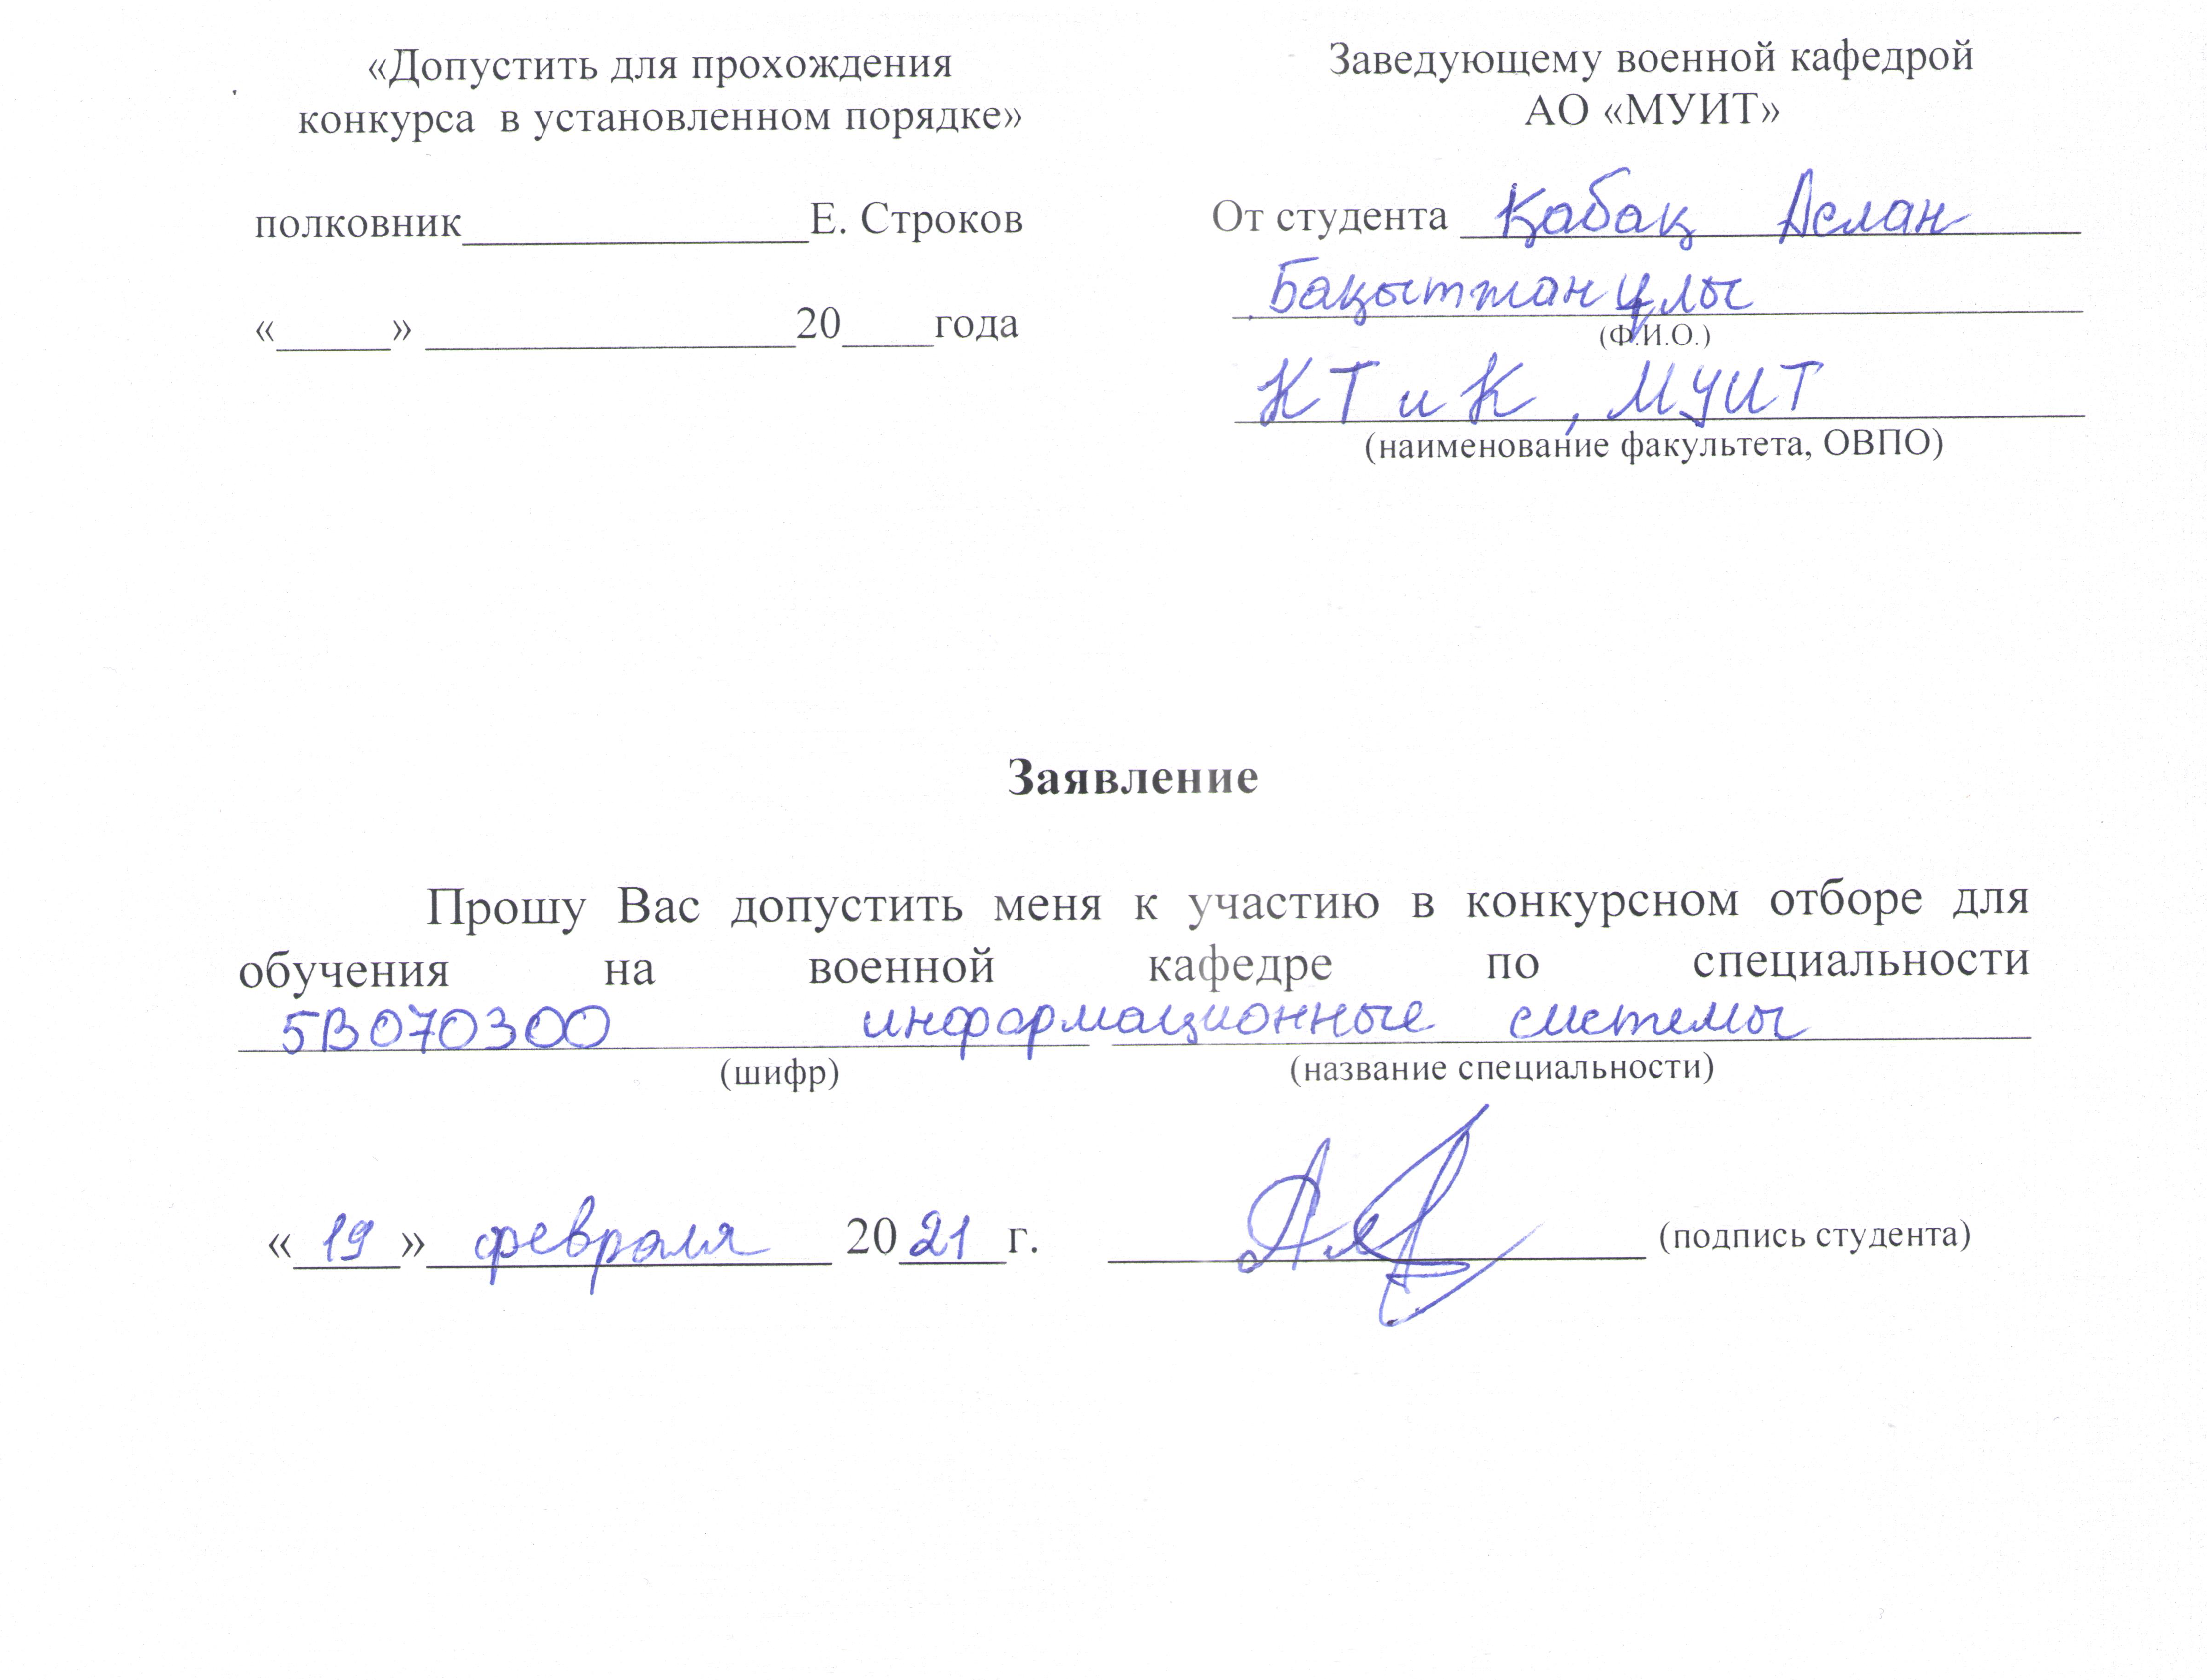 «Допустить для прохождения
конкурса в установленном порядке»
полковник_______________Е. Строков
«_____» ________________20____года
Заведующему военной кафедрой
АО «МУИТ»
От студента Қабақ Аслан
Бақытжанұлы
(Ф.И.О.)
КТ и К, МУИТ
(наименование факультета, ОВПО)
Заявление
Прошу Вас допустить меня к участию в конкурсном отборе для
обучения на военной кафедре по специальности
5В070300 информационные системы
(шифр) (название специальности)
«19» февраля 2021 г. (подпись студента)